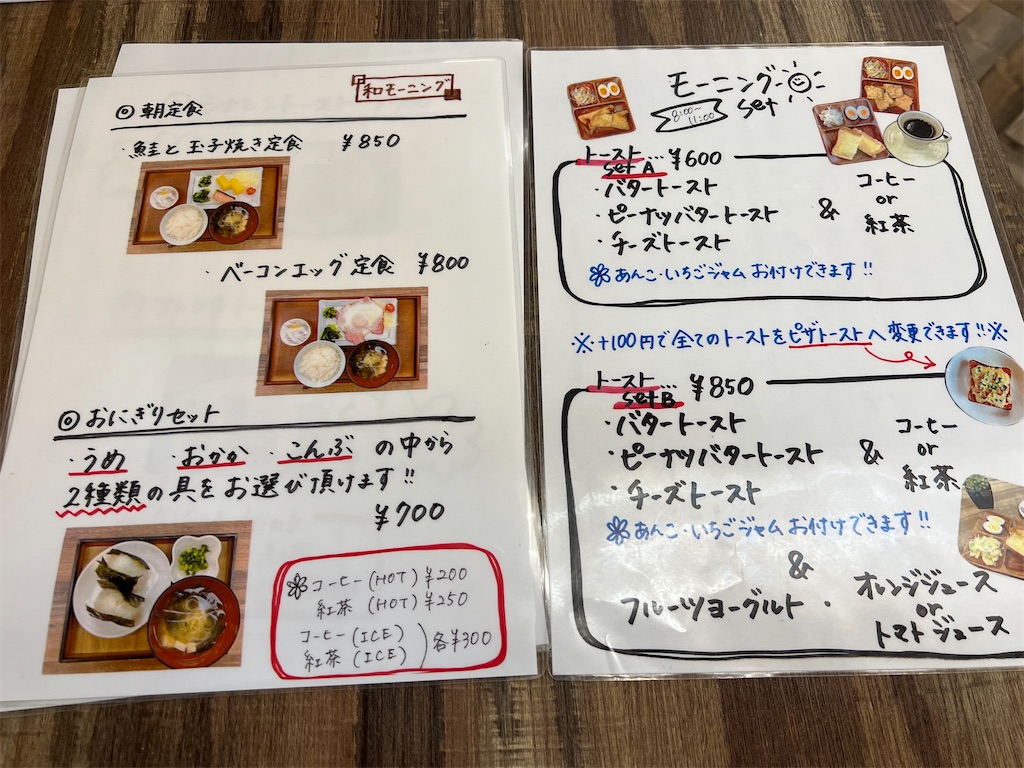 和モーニング
◎ 朝定食
・鮭と玉子焼き定食 ¥850
・ベーコンエッグ定食 ¥800
◎ おにぎりセット
・うめ ・おかか ・こんぶ の中から
2種類の具をお選び頂けます!!
¥700
コーヒー(HOT) ¥200
紅茶 (HOT) ¥250
コーヒー(ICE)
紅茶 (ICE)
各¥300
モーニング
set
8:00~
11:00
トースト
set A... ¥600
・バタートースト
・ピーナッツバタートースト
・チーズトースト
&
コーヒー
or
紅茶
あんこ・いちごジャム お付けできます!!
※+100円で全てのトーストをピザトーストへ変更できます!!※
トースト...
set B ¥850
・バタートースト
・ピーナッツバタートースト
・チーズトースト
&
コーヒー
or
紅茶
あんこ・いちごジャム お付けできます!!
&
フルーツヨーグルト ・
オレンジジュース
or
トマトジュース